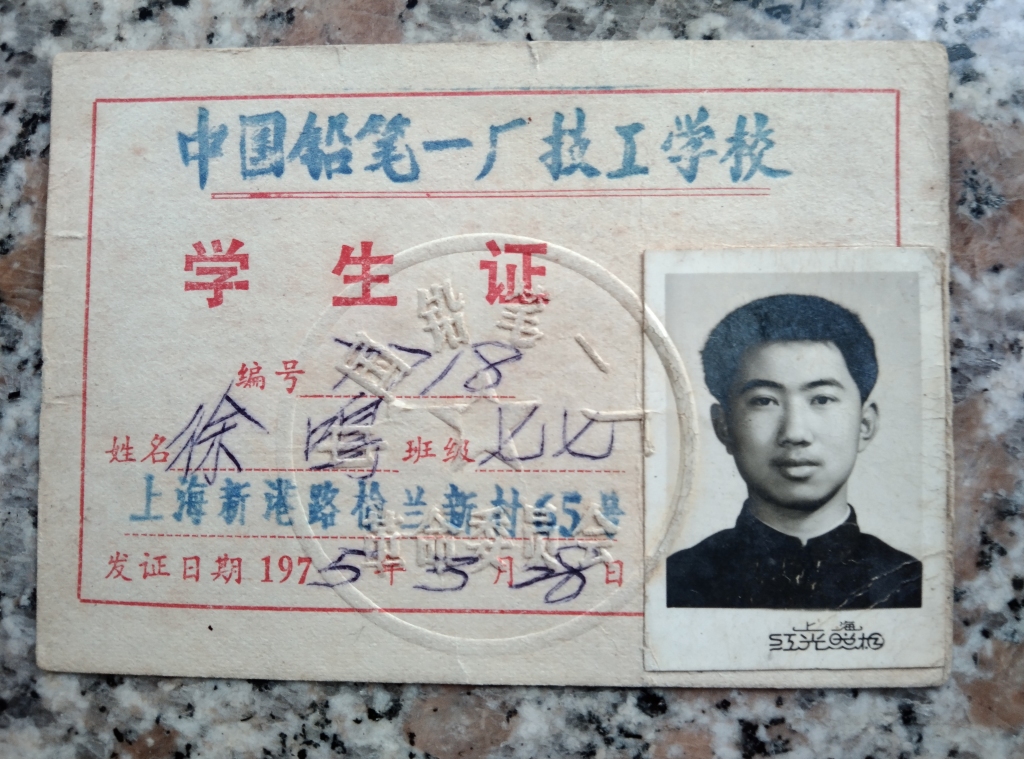 中国铅笔一厂技工学校
学生证
编号 7718
姓名 徐鸣 班级 七七
上海新港路桂兰新村65号
发证日期 1975年5月28日
国铅笔一
革命委员会
上海
红光照相